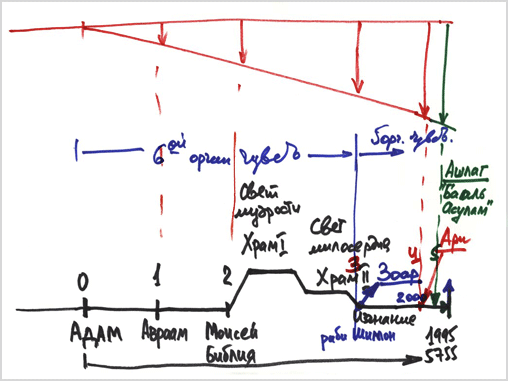 6ой орган чувств
5 орг. чувств.
Ашлаг
"Бааль
Асулам"
Свет
мудрости
Храм I
Свет
милосердия
Храм II
3
4
5
Ари
Зоар
2000
0
1
2
АДАМ
Авраам
Моисей
Библия
раби Шимон
Изгнание
1995
5755